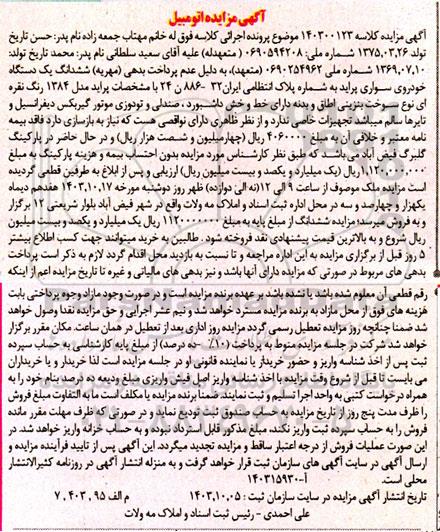 آگهی مزایده اتومبیل
آگهی مزایده کلاسه ۱۴۰۳۰۰۱۲۳ موضوع پرونده اجرائی کلاسه فوق له خانم مهتاب جمعه زاده نام پدر: حسن تاریخ
تولد ۱۳۷۵،۰۳،۲۶ شماره ملی: ۰۶۹۰۵۹۴۲۰۸ (متعهدله) علیه آقای سعید سلطانی نام پدر: محمد تاریخ تولد:
۱۳۶۹،۰۷،۱۰ شماره ملی ۰۶۹۰۲۵۴۹۶۲ (متعهد)، به دلیل عدم پرداخت بدهی (مهریه) ششدانگ یک دستگاه
خودروی سواری پراید به شماره پلاک انتظامی ایران۳۲ -۸۸۶ ن ۲۴ با مشخصات پراید مدل ۱۳۸۴ رنگ نقره
ای نوع سوخت بنزینی اطاق و بدنه دارای خط و خش داشبورد، صندلی و تودوزی موتور گیربکس دیفرانسیل و
تایرها سالم میباشد تجهیزات خاصی ندارد و از نظر ظاهری دارای نواقصی هست که نیاز به بازسازی دارد فاقد بیمه
نامه معتبر و خلافی آن به مبلغ ۴۰۶۰۰۰۰ ریال (چهارمیلیون و شصت هزار ریال) و در حال حاضر در پارکینگ
گلبرگ فیض آباد می باشد که طبق نظر کارشناس مورد مزایده بدون احتساب بیمه و هزینه پارکینگ به مبلغ
۱،۱۲۰،۰۰۰،۰۰۰ ریال (یک میلیارد و یکصد و بیست میلیون ریال) ارزیابی و پس از ابلاغ به طرفین قطعی گردیده
است مزایده ملک موصوف از ساعت ۹ الی ۱۲(نه الی دوازده) ظهر روز دوشنبه مورخه ۱۴۰۳،۱۰،۱۷ هفدهم دیماه
یکهزار و چهارصد و سه در محل اداره ثبت اسناد و املاک مه ولات واقع در شهر فیض آباد بلوار شریعتی ۱۲ برگزار
و به فروش میرسد؛ مزایده ششدانگ از مبلغ پایه به مبلغ ۱۱۲۰۰۰۰۰۰۰ ریال یک میلیارد و یکصد و بیست میلیون
ریال شروع و به بالاترین قیمت پیشنهادی نقد فروخته شود . طالبین به خرید میتوانند جهت کسب اطلاع بیشتر
۵ روز قبل از برگزاری مزایده به این اداره مراجعه و تا نسبت به بازدید محل اقدام گردد لازم به ذکر است پرداخت
بدهی های مربوط در صورتی که مزایده دارای آنها باشد و نیز بدهی های مالیاتی و غیره تا تاریخ مزایده اعم از اینکه
رقم قطعی آن معلوم شده باشد یا نشده باشد بر عهده برنده مزایده است و در صورت وجود مازاد وجوه پرداختی بابت
هزینه های فوق از محل مازاد به برنده مزایده مسترد خواهد شد و نیم عشر اجرایی و حق مزایده نقدا وصول خواهد
شد ضمنا چنانچه روز مزایده تعطیل رسمی گردد مزایده روز اداری بعد از تعطیل در همان ساعت. مکان مقرر برگزار
خواهد شد شرکت در جلسه مزایده منوط به پرداخت (۱۰٪ -ده درصد) از مبلغ پایه کارشناسی به حساب سپرده
ثبت پس از اخذ شناسه واریز و حضور خریدار یا نماینده قانونی او در جلسه مزایده است لذا خریدار و یا خریداران
می بایست تا قبل از شروع وقت مزایده با اخذ شناسه واریز اصل فیش واریزی مبلغ ودیعه ده درصد بنام خود را به
همراه درخواست کتبی به واحد اجرا تسلیم و ثبت نمایند. ضمنا برنده مزایده یا مکلف است ما به التفاوت مبلغ فروش
را ظرف مدت پنج روز از تاریخ مزایده به حساب صندوق ثبت تودیع نماید و در صورتی که ظرف مهلت مقرر مانده
فروش را به حساب سپرده ثبت واریز نکند، مبلغ مذکور قابل استرداد نبوده و به حساب خزانه واریز خواهد شد. در
این صورت عملیات فروش از درجه اعتبار ساقط و مزایده تجدید میگردد. این آگهی پس از تایید فرآینده مزایده و
ارسال آگهی در سایت آگهی های سازمان ثبت قرار خواهد گرفت و به منزله انتشار آگهی در روزنامه کثیرالانتشار
محلی است. آ-۱۴۰۳۱۵۹۳۰
تاریخ انتشار آگهی مزایده در سایت سازمان ثبت : ۱۴۰۳،۱۰،۰۵ م الف ۷،۴۰۳،۹۵
علی احمدی – رئیس ثبت اسناد و املاک مه ولات